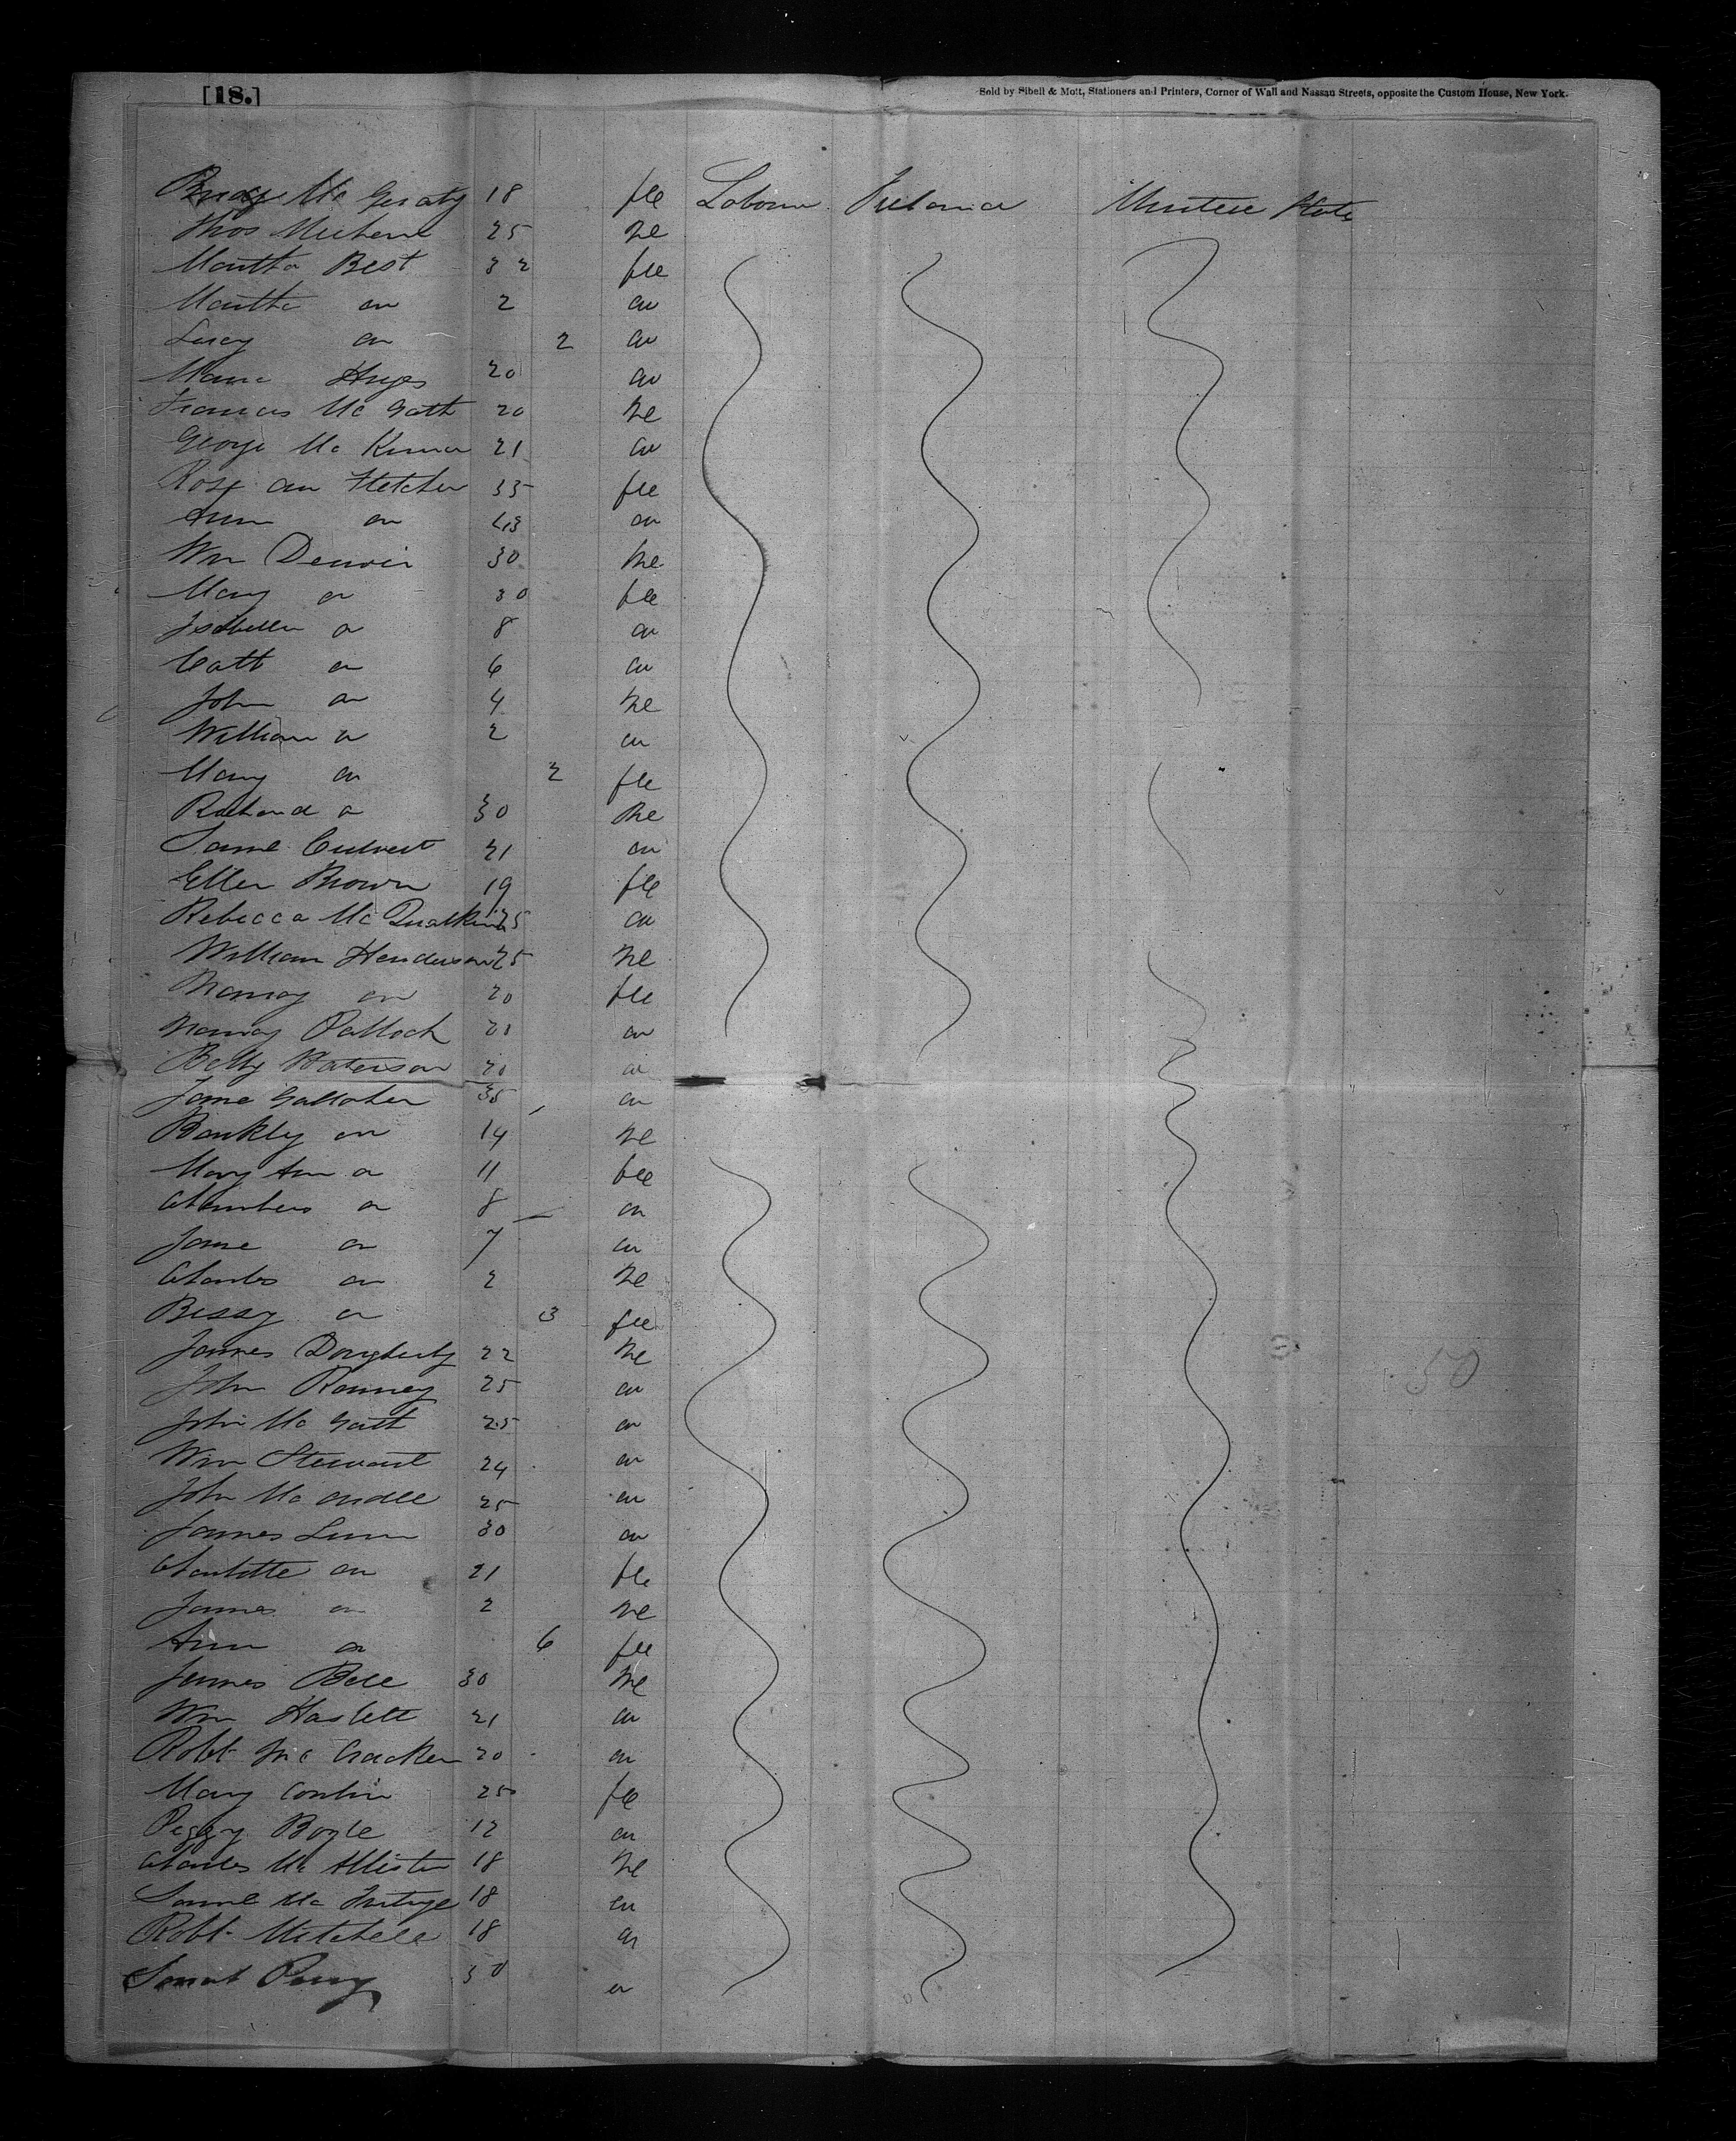 [18.] Sold by Sibell & Mott, Stationers and Printers, Corner of Wall and Nassau Streets, opposite the Custom House, New York.
Mc Geraty 18 fle Labourer Ireland United State
Thos 25 Me
Martha Best 32 fle
Martha on 2 on
Lucy on 2 on
Huges 20 on
Francis Mc Gath 20 Me
George Mc 21 on
Rose an Fletcher 35 fle
Ann on on
Wm Denvir 30 Me
Mary on 30 fle
Isabella on 8 on
Catt on 6 on
John on 4 Me
William on 2 on
Mary on 2 fle
Richard on 30 Me
Saml Culvert 21 on
Ellen Brown 19 fle
Rebecca Mc 25 on
William Henderson 25 Me
Nancy on 20 fle
Nancy Pollock 20 on
Betty Waterson 20 on
Jane Gallaher 35 on
Bankly on 14 Me
Mary Ann on 11 fle
Chambers on 8 on
Jane on 7 on
Charles on 2 Me
Bessy on 3 fle
James Dougherty 22 Me
John Ranney 25 on
John Mc Gath 25 on
Wm Stewart 24 on
John Mc Ardle 25 on
James Lunn 30 on
Charlotte on 21 fle
James on 2 Me
Ann on 6 fle
James Bell 30 Me
Wm Haslett 21 on
Robt Mc Cracken 20 on
Mary Conlin 25 fle
Peggy Boyle 12 on
Charles Mc Allister 18 Me
Saml Mc 18 on
Robt Mitchell 18 on
Perry 30 on
50